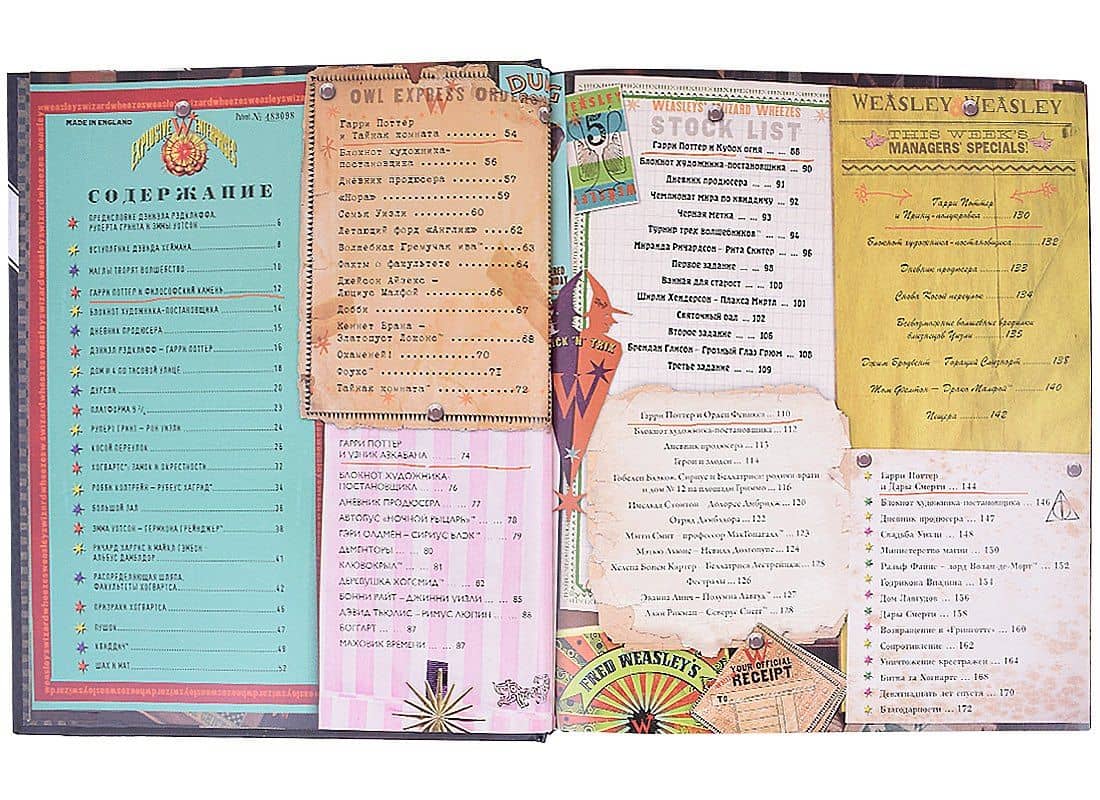 weasleyswizardwheezesweasleyswizardwheezesweasleyswiz
MADE IN ENGLAND
Patent № 483098
EXPLOSIVE ENTERPRISES
W
СОДЕРЖАНИЕ
ПРЕДИСЛОВИЕ ДЭНИЭЛА РЭДКЛИФФА,
РУПЕРТА ГРИНТА И ЭММЫ УОТСОН 6
ВСТУПЛЕНИЕ ДЭВИДА ХЕЙМАНА 8
МАГЛЫ ТВОРЯТ ВОЛШЕБСТВО 10
ГАРРИ ПОТТЕР И ФИЛОСОФСКИЙ КАМЕНЬ 12
БЛОКНОТ ХУДОЖНИКА-ПОСТАНОВЩИКА 14
ДНЕВНИК ПРОДЮСЕРА 15
ДЭНИЭЛ РЭДКЛИФФ – ГАРРИ ПОТТЕР 16
ДОМ И 4 ПО ТИСОВОЙ УЛИЦЕ 18
ДУРСЛИ 20
ПЛАТФОРМА 9 ¾ 23
РУПЕРТ ГРИНТ – РОН УИЗЛИ 24
КОСОЙ ПЕРЕУЛОК 26
ХОГВАРТС: ЗАМОК И ОКРЕСТНОСТИ 32
РОББИ КОЛТРЕЙН – РУБЕУС ХАГРИД 34
БОЛЬШОЙ ЗАЛ 36
ЭММА УОТСОН – ГЕРМИОНА ГРЕЙНДЖЕР™ 38
РИЧАРД ХАРРИС И МАЙКЛ ГЭМБОН –
АЛЬБУС ДАМБЛДОР 41
РАСПРЕДЕЛЯЮЩАЯ ШЛЯПА.
ФАКУЛЬТЕТЫ ХОГВАРТСА 42
ПРИЗРАКИ ХОГВАРТСА 46
ПУШОК 47
КВИДДИЧ™ 49
ШАХ И МАТ 52
OWL EXPRESS ORDERS
Гарри Поттер
и Тайная комната ......... 54
Блокнот художника-
постановщика ........ 56
Дневник продюсера ........57
«Нора» ........59
Семья Уизли ........60
Летающий форд «Англия» ....62
Волшебная Гремучая ива™ ..63
Факты о факультете ........64
Джейсон Айзекс –
Люциус Малфой ........66
Добби ........67
Кеннет Брана –
Златопуст Локонс™ ........68
Окаменей! ........70
Фоукс™ ........71
Тайная комната™ ........72
ГАРРИ ПОТТЕР
И УЗНИК АЗКАБАНА ... 74
БЛОКНОТ ХУДОЖНИКА-
ПОСТАНОВЩИКА ... 76
ДНЕВНИК ПРОДЮСЕРА ... 77
АВТОБУС «НОЧНОЙ РЫЦАРЬ» ... 78
ГЭРИ ОЛДМЕН – СИРИУС БЛЭК™ ... 79
ДЕМЕНТОРЫ ... 80
КЛЮВОКРЫЛ™ ... 81
ДЕРЕВУШКА ХОГСМИД™ ... 82
БОННИ РАЙТ – ДЖИННИ УИЗЛИ ... 85
ДЭВИД ТЬЮЛИС – РИМУС ЛЮПИН ... 86
БОГГАРТ ... 87
МАХОВИК ВРЕМЕНИ ... 87
WEASLEY
5
WEASLEYS' WIZARD WHEEZES
STOCK LIST
Гарри Поттер и Кубок огня ... 88
Блокнот художника-постановщика ... 90
Дневник продюсера ... 91
Чемпионат мира по квиддичу ... 92
Черная метка ... 93
Турнир трех волшебников™ ... 94
Миранда Ричардсон – Рита Скитер ... 96
Первое задание ... 98
Ванная для старост ... 100
Ширли Хендерсон – Плакса Миртл ... 101
Святочный бал ... 102
Второе задание ... 106
Брендан Глисон – Грозный Глаз Грюм ... 108
Третье задание ... 109
Гарри Поттер и Орден Феникса ... 110
Блокнот художника-постановщика ... 112
Дневник продюсера ... 113
Герои и злодеи ... 114
Гобелен Блэков. Сириус и Беллатриса: родовые враги
и дом № 12 на площади Гриммо ... 116
Имельда Стонтон – Долорес Амбридж ... 120
Отряд Дамблдора ... 122
Мэгги Смит – профессор МакГонагалл™ ... 123
Мэтью Льюис – Невилл Долгопупс ... 124
Хелена Бонем Картер – Беллатриса Лестрейндж ... 125
Фестралы ... 126
Эванна Линч – Полумна Лавгуд™ ... 127
Алан Рикман – Северус Снегг™ ... 128
WEASLEY & WEASLEY
THIS WEEK'S
MANAGERS' SPECIALS!
Гарри Поттер
и Принц-полукровка ... 130
Блокнот художника-постановщика ... 132
Дневник продюсера ... 133
Снова Косой переулок ... 134
Всевозможные волшебные вредилки
близнецов Уизли ... 135
Джим Бродбент – Гораций Слизнорт ... 138
Том Фелтон – Драко Малфой™ ... 140
Пещера ... 142
Гарри Поттер
и Дары Смерти ... 144
Блокнот художника-постановщика ... 146
Дневник продюсера ... 147
Свадьба Уизли ... 148
Министерство магии ... 150
Рэльф Файнс – лорд Волан-де-Морт™ ... 152
Годрикова Впадина ... 154
Дом Лавгудов ... 156
Дары Смерти ... 158
Возвращение в «Гринготтс» ... 160
Сопротивление ... 162
Уничтожение крестражей ... 164
Битва за Хогвартс ... 168
Девятнадцать лет спустя ... 170
Благодарности ... 172
FRED WEASLEY'S
W
YOUR OFFICIAL
RECEIPT
TO: